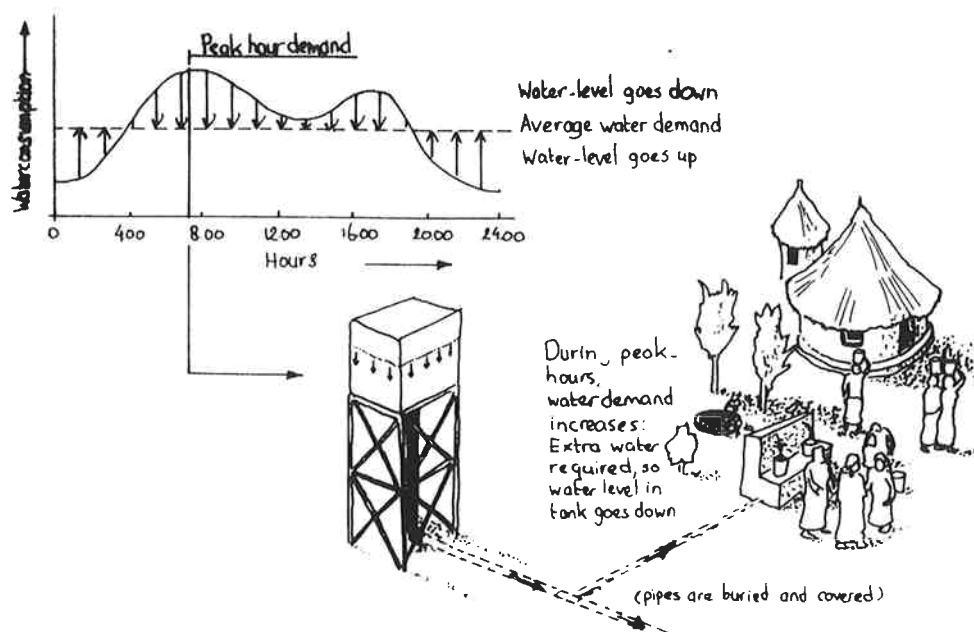 Peak hour demand
Waterconsumption
Water-level goes down
Average water demand
Water-level goes up
0 400 800 1200 1600 2000 2400
Hours
Durin
peak-
hours,
water demand
increases:
Extra water
required, so
water level in
tank goes down
(pipes are buried and covered)